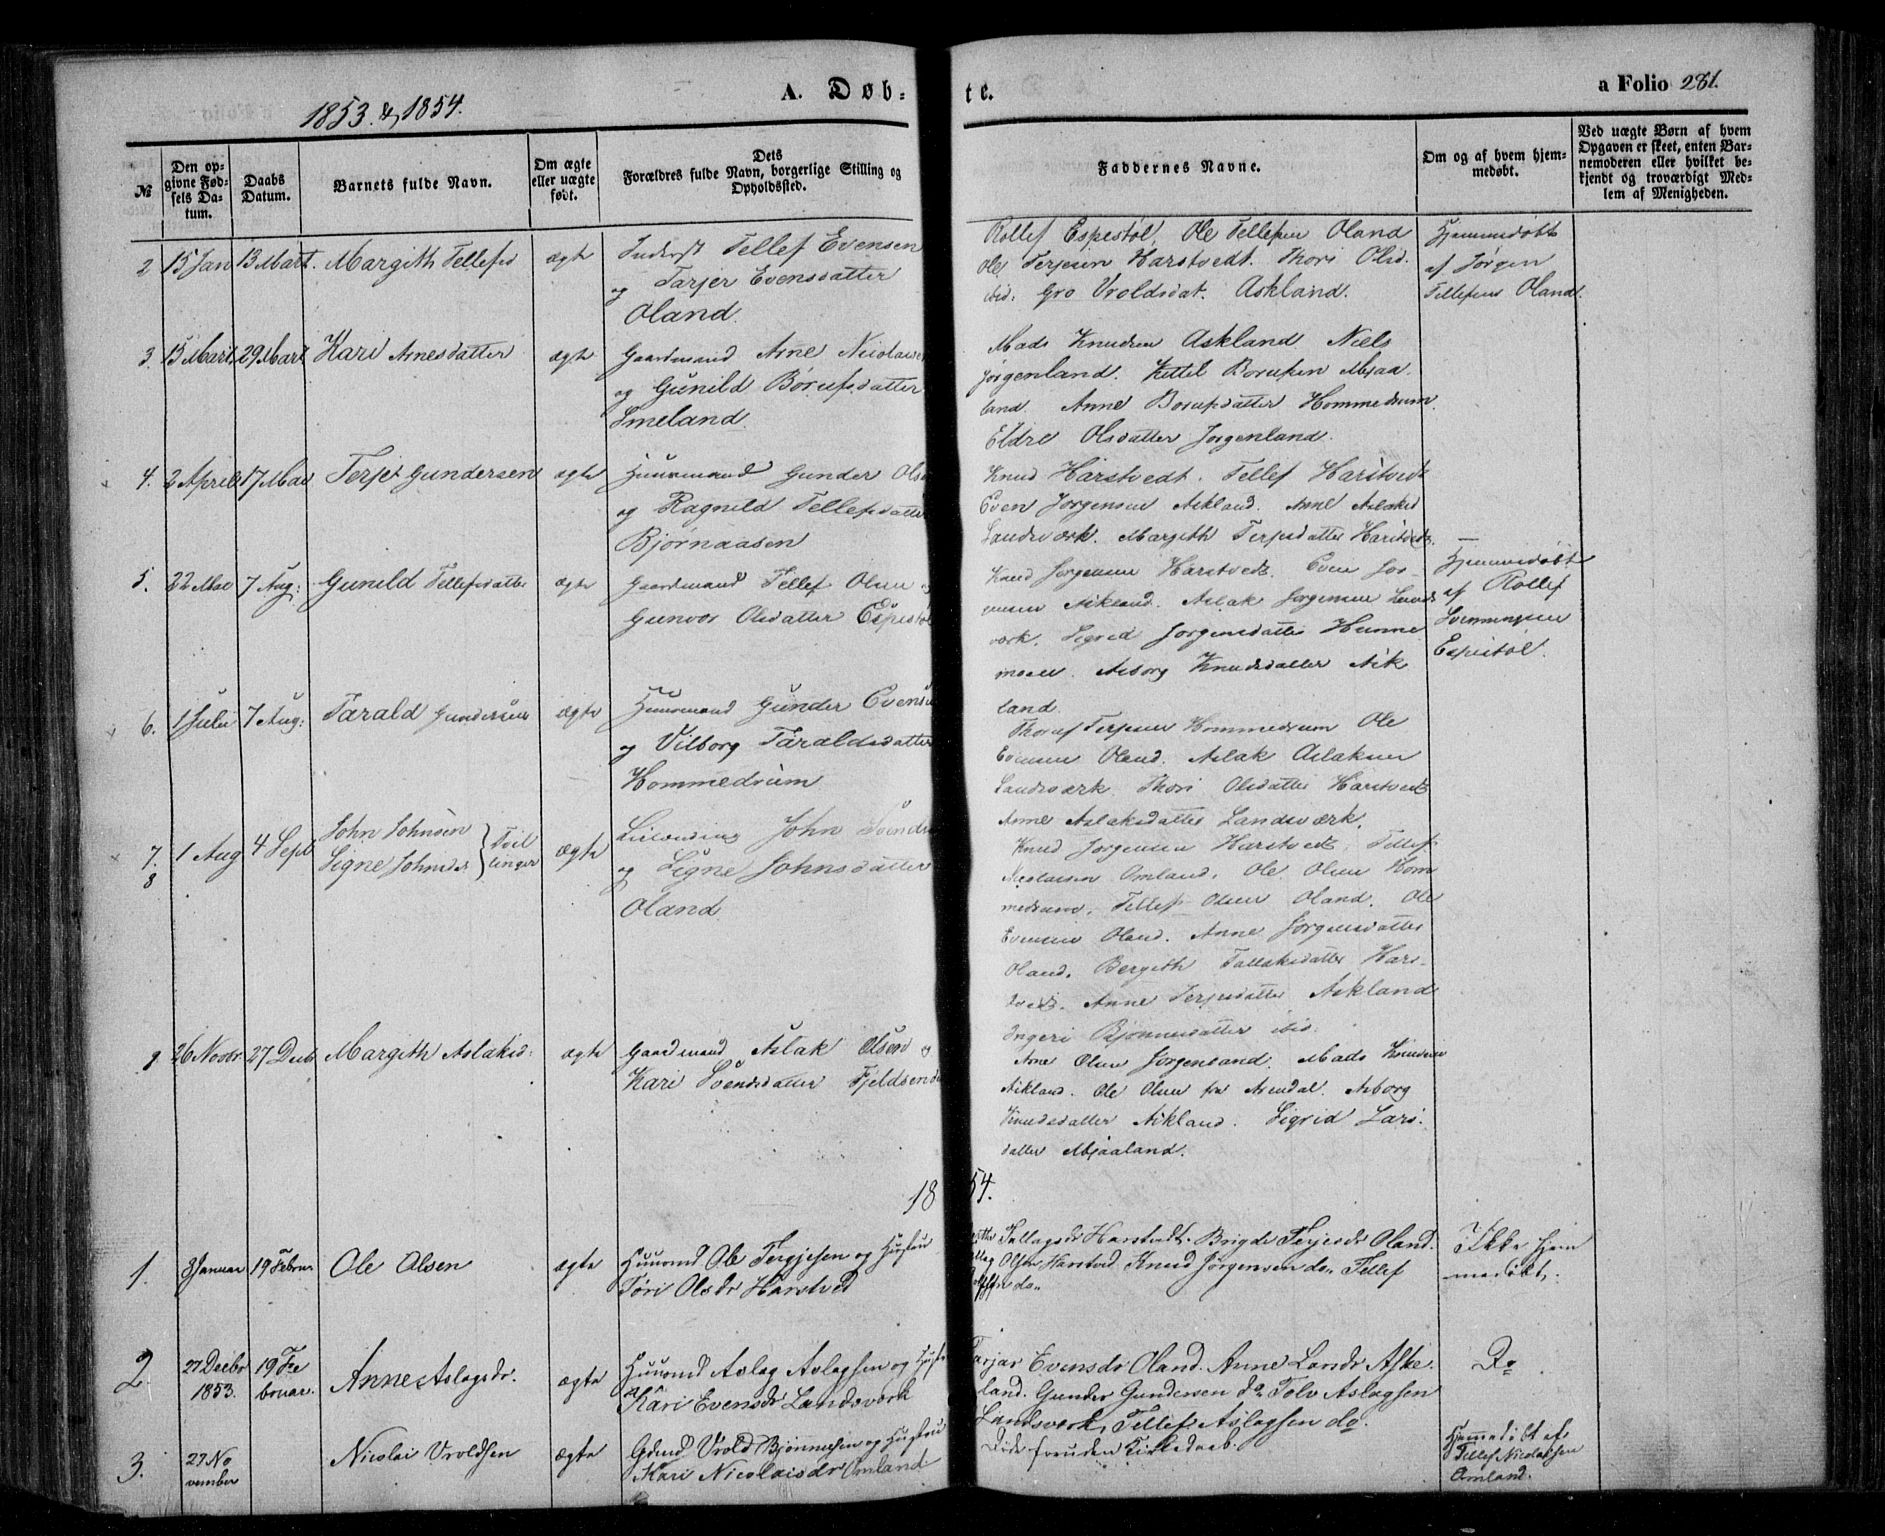 1853 & 1854.
A. Døb-
te.
a Folio 281.
№
Den op-
givne Fød-
sels Da-
tum.
Daabs
Datum.
Barnets fulde Navn.
Om ægte
eller uægte
født.
Dets
Forældres fulde Navn, borgerlige Stilling og
Opholdssted.
Faddernes Navne.
Om og af hvem hjem-
medøbt.
Ved uægte Børn af hvem
Opgaven er skeet, enten Bar-
nemoderen eller hvilket be-
kjendt og troværdigt Med-
lem af Menigheden.
2 15 Jan 13 Mart. Margith Tellefsd ægte
Inderst Tellef Evensen
og Tarjer Evensdatter
Oland.
Rollef Espestøl, Ole Tellefsen Oland
Ole Terjesen Harstvedt. Thori Olsd.
ibid: Gro Vroldsdat. Askland.
Hjemmedøbt
af Jørgen
Tellefsens Oland.
3. 15 Mart 29 Mart Kari Arnesdatter ægte
Gaardmand Arne Nicolaisen
og Gunild Børufsdatter
Smeland.
Mads Knudsen Askland Niels
Jørgenland. Kittel Borufsen Mjaa
land. Anne Borufsdatter Hommedrum.
Eldre Olsdatter Jørgenland.
4. 2 April 17 Mai Terjer Gundersen ægte
Huusmand Gunder Olse
og Ragnild Tellefsdatter
Bjørnaasen
Knud Harstvedt. Tellef Harstvedt
Even Jørgensen Askland. Anne Aslaksd
Landsværk. Margith Terjesdatter Harstvedt.
5. 22 Mai 7 Aug: Gunild Tellefsdatter ægte
Gaardmand Tellef Olsen og
Gunvor Olsdatter Espestøl
Knud Jørgensen Harstvedt. Even Jør-
gensen Askland. Aslak Jørgensen Lands
værk. Sigrid Jørgensdatter Hunne
moen. Asborg Knudsdatter Ask
land.
Hjemmedøbt
af Rollef
Svenningsen
Espestøl.
6. 1 Juli 7 Aug: Tarald Gundersen ægte
Huusmand Gunder Evensen
og Vilborg Taraldsdatter
Hommedrum
Thoruf Terjesen Hommedrum Ole
Evensen Oland. Aslak Aslaksen
Landsværk. Thori Olsdatter Harstvedt
Anne Aslaksdatter Landsværk.
7. 8 1 Aug 4 Sept John Johnsen
Signe Johnsdr } Tvil
linger ægte
John Svends
og Signe Johnsdatter
Oland
Knud Jørgensen Harstvedt, Tellef
Nicolaisen Omland. Ole Olsen Hom
medrum. Tellef Olsen Oland. Ole
Evensen Oland. Anne Jørgensdatter
Oland. Bergith Tallaksdatter Hars-
tvedt. Anne Terjesdatter Askland
Ingeri Bjønnesdatter ibid.
9 26 Novbr. 27 Decb Margith Aslaksd: ægte
Gaardmand Aslak Olsen og
Kari Svendsdatter Fjeldsend
Arne Olsen Jørgenland. Mads Knudsen
Askland. Ole Olsen fra Arendal. Asborg
Knudsdatter Askland. Sigrid Lars-
datter Mjaaland.
1854.
1. 8 Januar 19 Februar Ole Olsen ægte
Huusmd Ole Tergjesen og Hustru
Tøri Olsdr Harstved
Tallagsdr Harstvedt. Brigde Terjesdr Oland.
Olsen Harstved. Knud Jørgensen do. Tellef
do.
Ikke hjem
medøbt.
2. 27 Decbr
1853. 19 Fe
bruar. Anne Aslagsdr. ægte
Huusmd Aslag Aslagsen og Hustru
Kari Evensdr Landsverk
Tarjar Evensdr Oland. Anne Larsdr Aske
land. Gunder Gundersen do Tolv Aslagsen
Landsverk, Tellef Aslagsen do.
Do
3. 27 No
vember Nicolai Vroldsen ægte
Gdmd Vrold Bjønnesen og Hustru
Kari Nicolaisdr Omland
Døde foruden Kirkedaab.
Hjemmedøbt af
Tellef Nicolaisen
Omland.